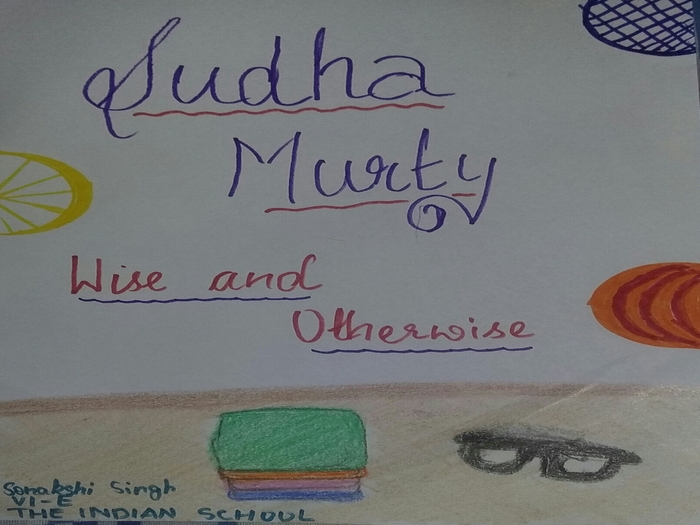 Sudha
Murty
Wise and
Otherwise
Sonakshi Singh
VI-E
THE INDIAN SCHOOL